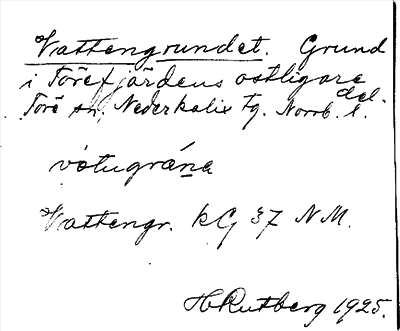 Vattengrundet. Grund
i Törefjärdens ostligare del.
Töre sn. Nederkalix tg. Norrb. l.
vòtugrána
Vattengr. kG 37 N.M.
H Rutberg 1925.